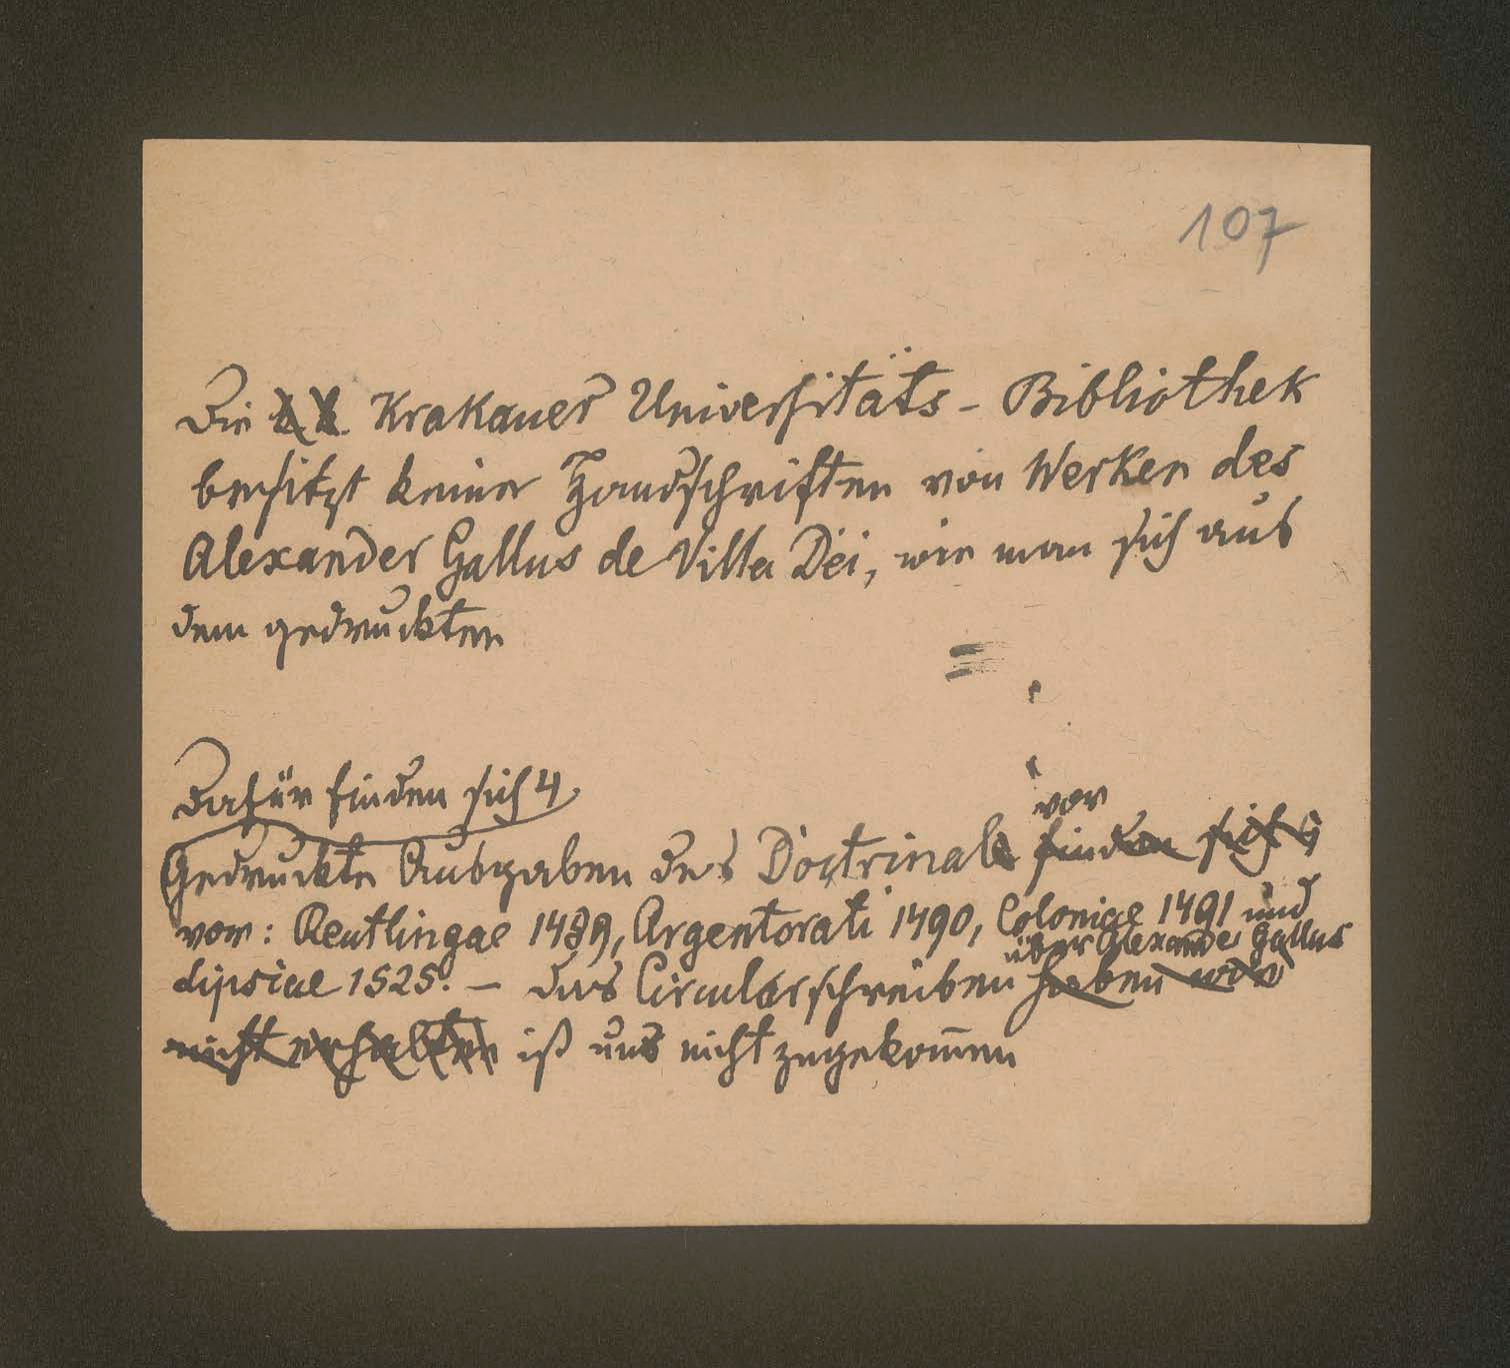 107
Die k k Krakauer Universitäts-Bibliothek
besitzt keine Handschriften von Werken des
Alexander Gallus de Villa Dei, wie man sich aus
dem gedruckten
Dafür finden sich 4
vor
Gedruckte Ausgaben des Doctrinale finden sich 4
vor: Reutlingae 1489, Argentorati 1490, Coloniae 1491 und
über Alexander Gallus
Lipsiae 1525. — das Circularschreiben haben wir
nicht erhalten ist uns nicht zugekom̅en